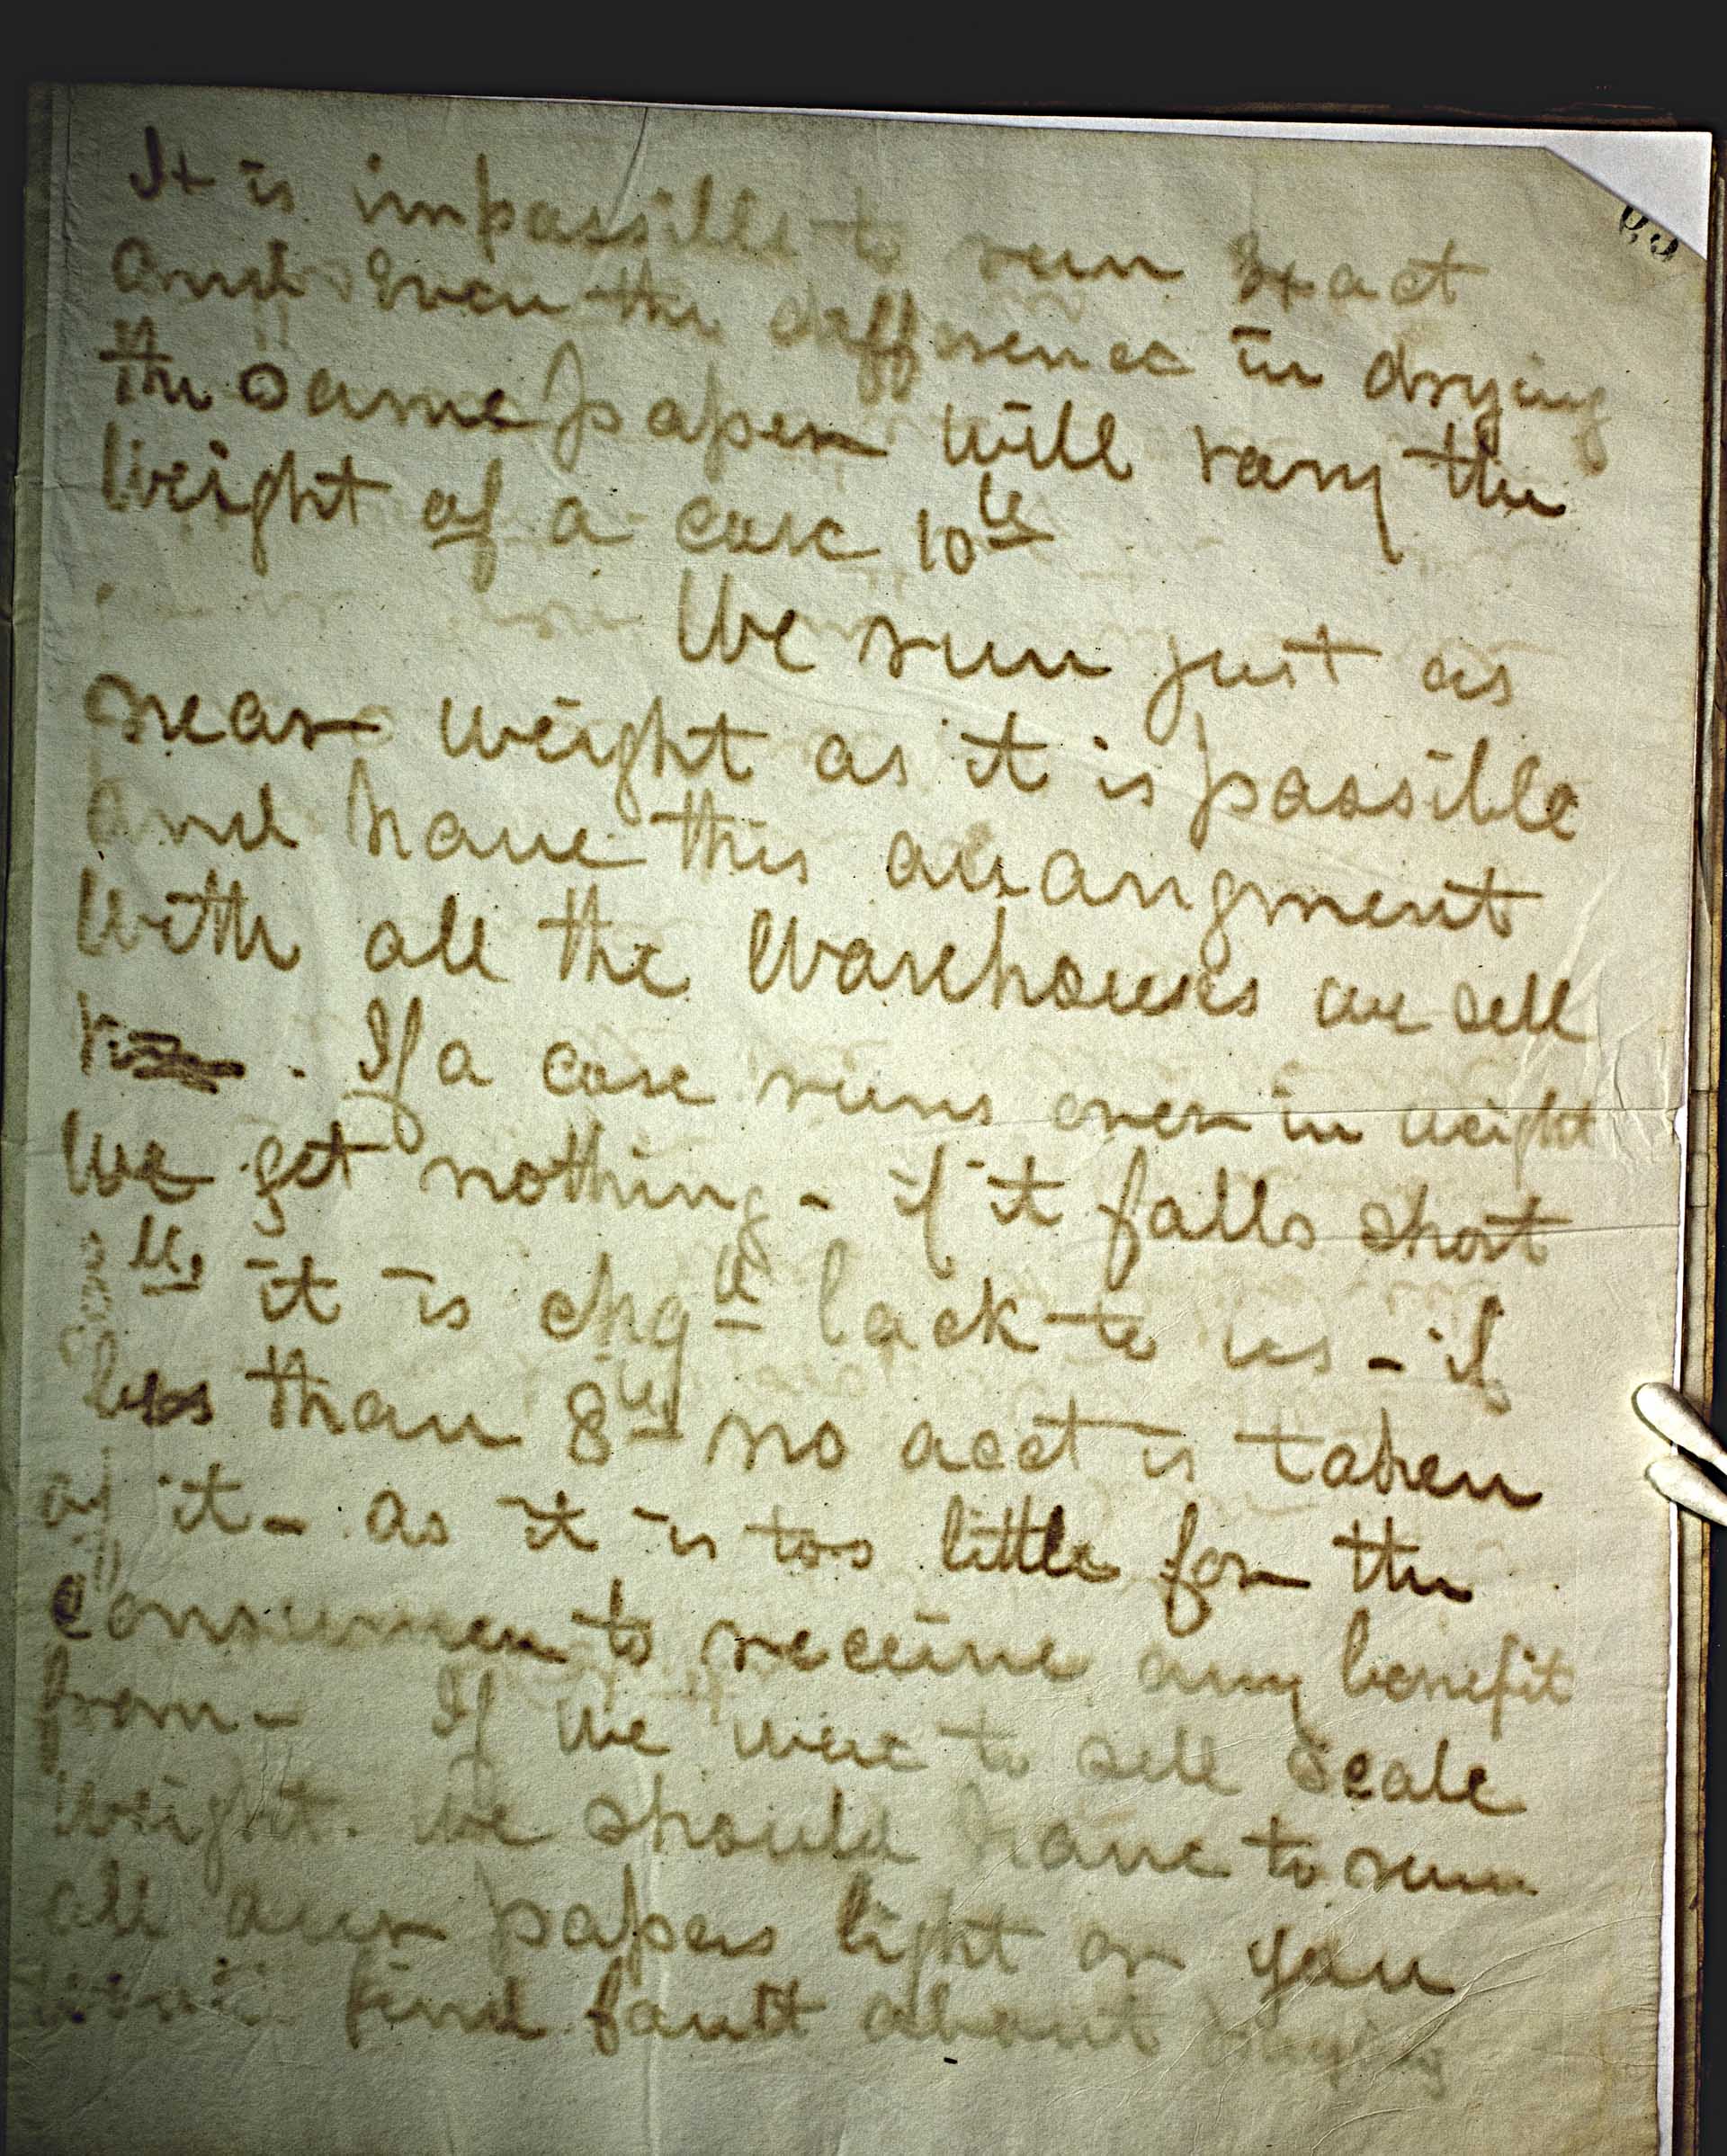 It is impossible to run exact
and even the difference in drying
the same paper will vary the
Weight of a case 10 lb
We run just as
near weight as it is possible
and have this arrangment
With all the Warehouses we sell
. If a case runs over in weight
We get nothing - if it falls short
8 lb, it is chgd back to us - if
less than 8 lb no acct is taken
of it - as it is too little for the
consumer to receive any benefit
from - If we were to sell scale
weight. We should have to run
all our papers light or you
find fault about